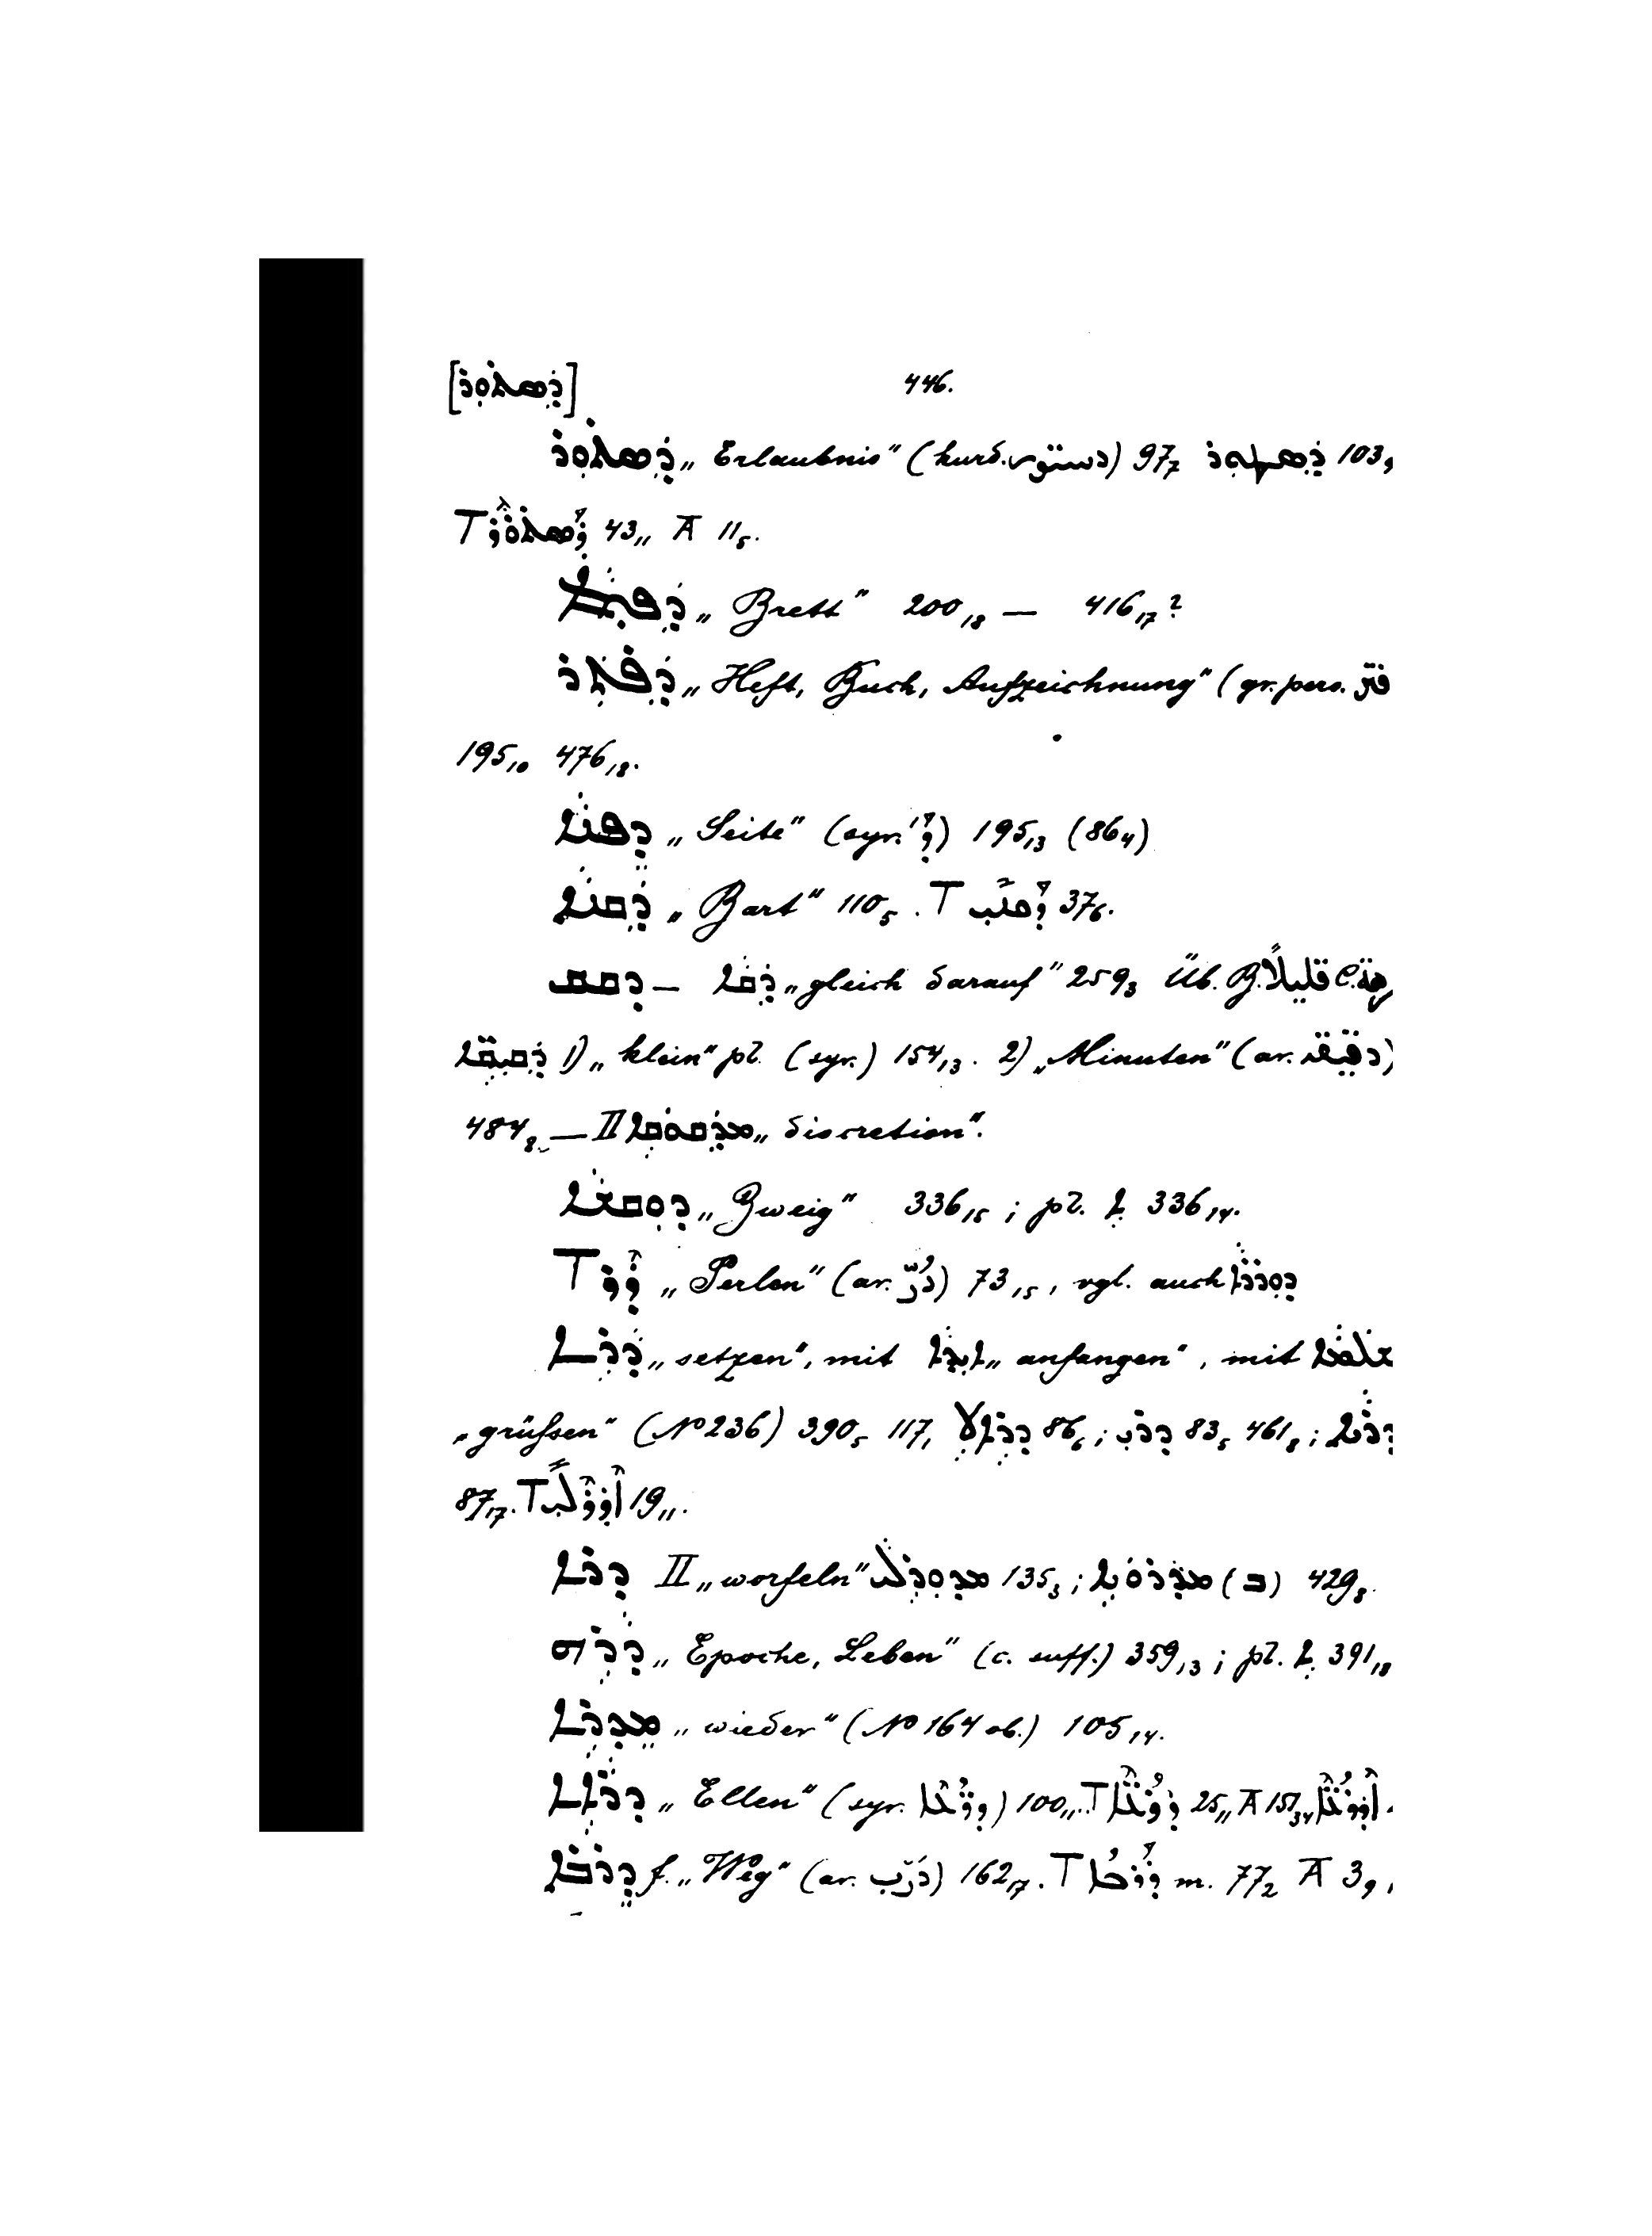 [ܕܣܬܘܪ] 446.
ܕܣܬܘܪ „Erlaubnis“ (kurd. دستور) 97₇ ܕܣܛܘܪ 103₉
T ܕܣܬܘܪ 43₁₁ Ā 11₅.
„Brett“ 200₁₈ — 416₁₇?
ܕܦܬܪ „Heft, Buch, Aufzeichnung“ (gr. pers.
195₁₀ 476₁₈.
ܕܦܢܐ „Seite“ (syr. ܕ) 195₁₃ (86₄)
ܕܩܢܐ „Bart“ 110₅. T ܕܩܢܝ 37₆.
ܕܩܩ — ܕܩܐ „gleich darauf“ 259₃ Üb. B. قليلاً C.
ܕܩܝܩܐ 1) „klein“ pl. (syr.) 154₁₃. 2) „Minuten“ (ar. دقيقة)
484₈ — II ܡܕܩܘܩܐ „discretion“.
ܕܘܩܫܐ „Zweig“ 336₁₅; pl. ܐ 336₁₄.
T ܕܪ „Perlen“ (ar. دُرّ) 73₁₅, vgl. auch ܕܘܪܪܐ
ܕܪܐ „setzen“, mit ܐܝܕܐ „anfangen“, mit ܫܠܡܐ
„grüßen“ (№ 236) 390₅ 117₁ 86₆; ܕܪܝ 83₅ 461₈;
87₁₇. T 19₁₁.
ܕܪܐ II „worfeln“ 135₃; (ܒ) 429₈.
ܕܪܗ „Epoche, Leben“ (c. suff.) 359₁₃; pl. ܐ 391₁₈
ܡܕܪܐ „wieder“ (№ 164 ob.) 105₁₄.
ܕܪܐܐ „Ellen“ (syr. ܕܪܥܐ) 100₁₁. T ܕܪܥܐ 25₁₁ Ā 151₃₄ ܐܕܪܥܐ.
ܕܪܒܐ f. „Weg“ (ar. دَرْب) 162₁₇. T ܕܪܒܐ m. 77₂ Ā 3₉,